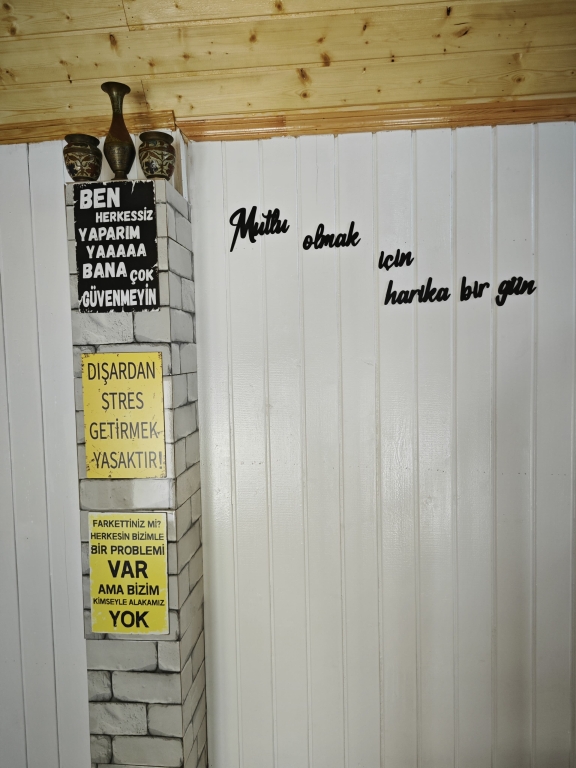 BEN
HERKESSİZ
YAPARIM
YAAAAA
BANA ÇOK
GÜVENMEYİN
DIŞARDAN
STRES
GETİRMEK
YASAKTIR!
FARKETTİNİZ Mİ?
HERKESİN BİZİMLE
BİR PROBLEMİ
VAR
AMA BİZİM
KİMSEYLE ALAKAMIZ
YOK
Mutlu olmak
için
harika bir gün